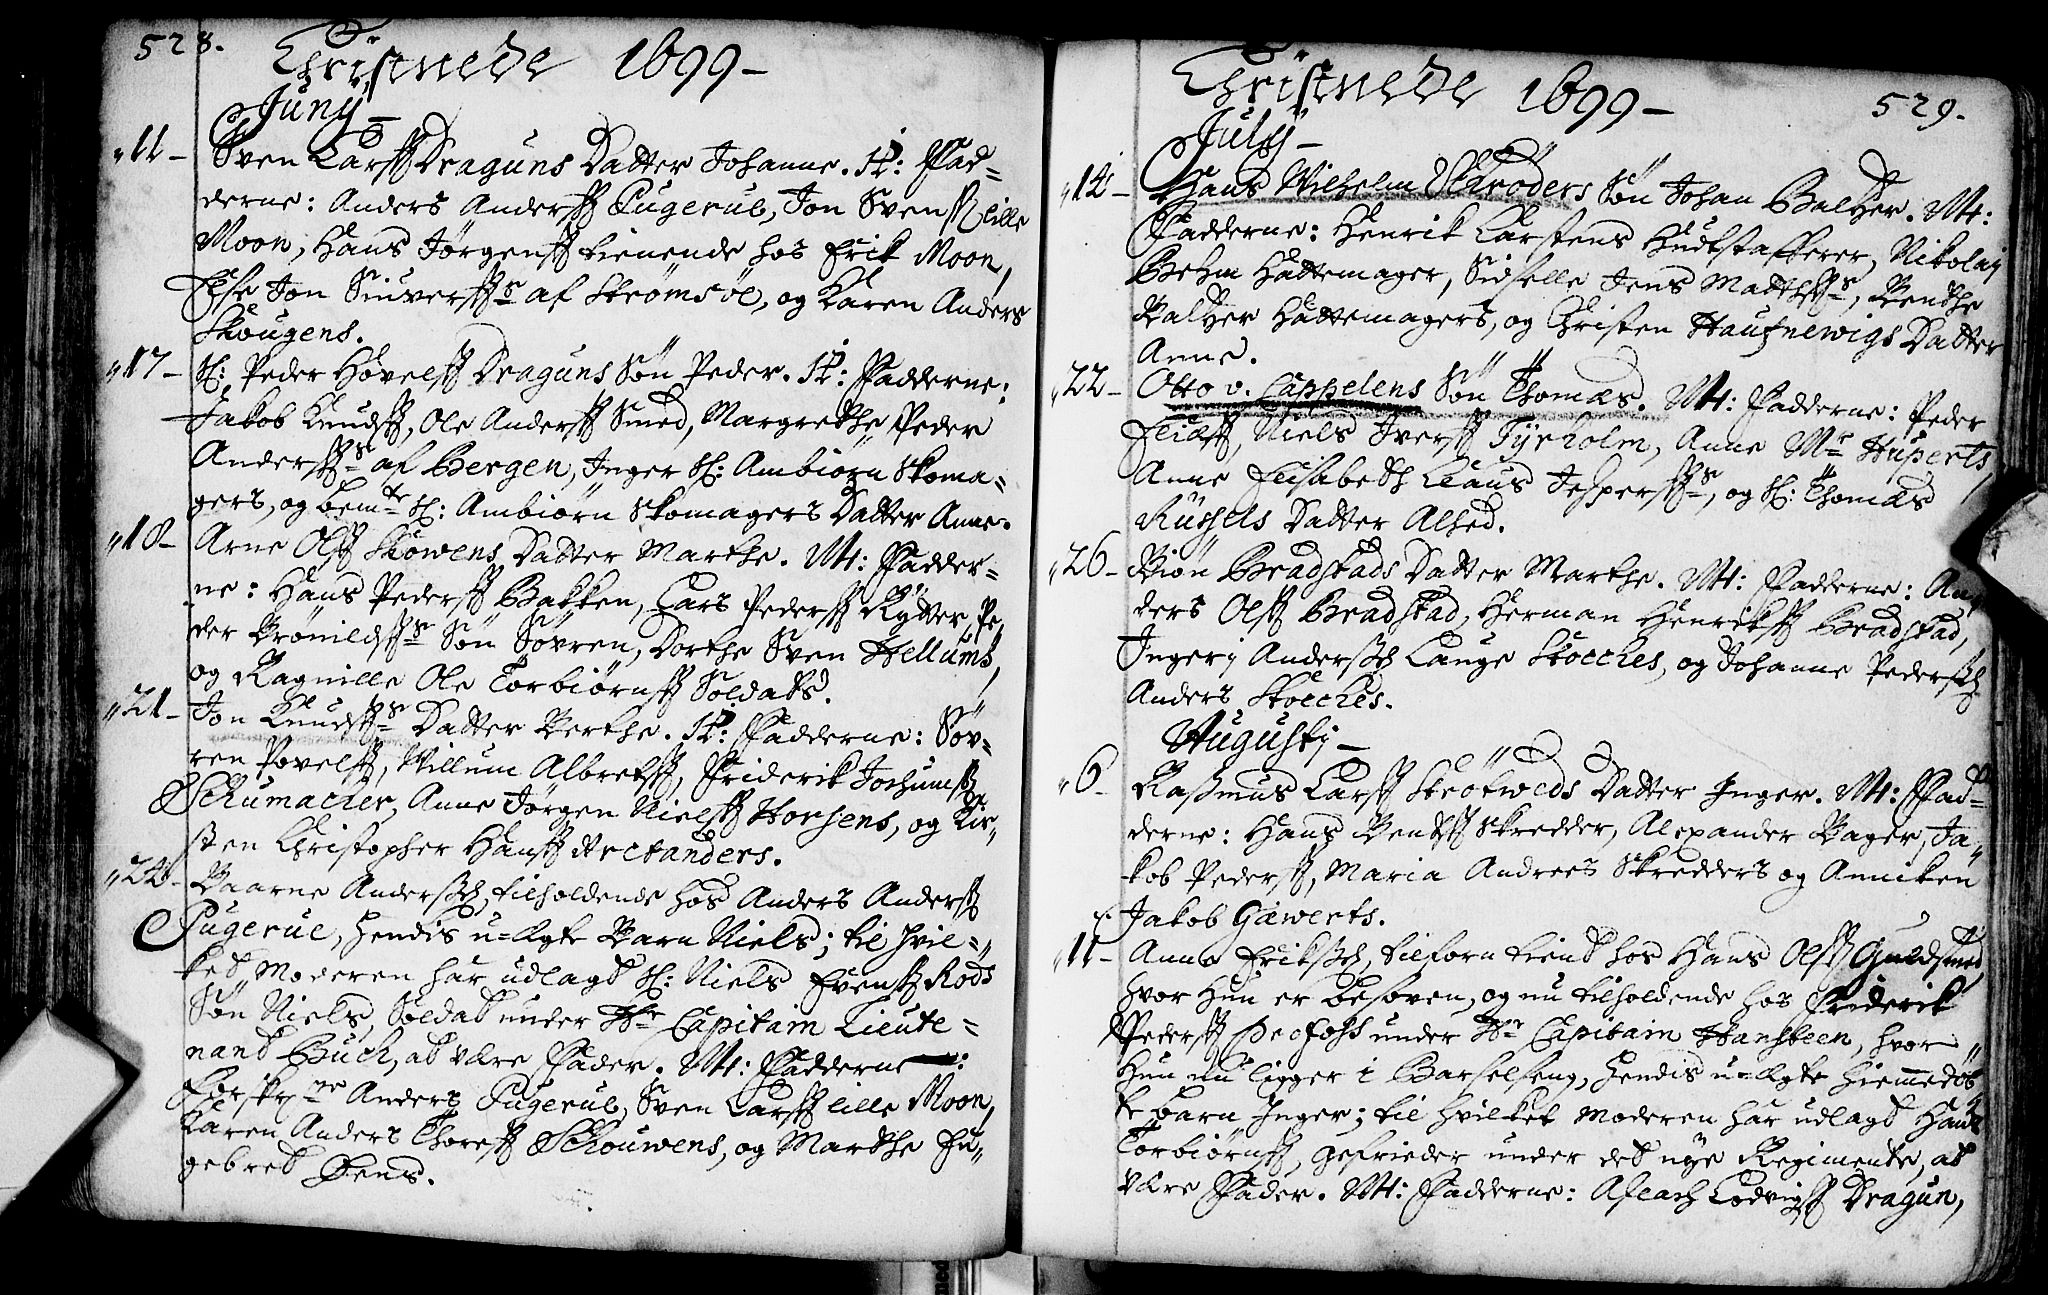 528.
Christnede 1699 -
Juny -
11 - Sven Larss Draguns Datter Johanne. H: Fad=
derne: Anders Anderss Pugerud, Jon Svenss lille
Moon, Hans Jørgenss tienende hos Erik Moon,
Else Jon Siuverss af Strømsøe, og Karen Anders
Skougens.
17 - Sl: Peder Høvelss Draguns Søn Peder. H: Fadderne:
Jakob Knudss, Ole Anderss Smed, Margrethe Peder
Anderss af Bergen, Inger Sl: Ambiørn Skoma=
gers, og bemte Sl: Ambiørn Skomagers Datter Anne.
18 - Arne Olss Skowens Datter Marthe. M: Fadder=
ne: Hans Pederss Bakken, Lars Pederss Rytter, Pe,
der Brønildss Søn Søvren, Dorthe Sven Hellums,
og Ragnille Ole Torbiørnss Soldats.
21 - Jon Knudss Datter Berthe. H: Fadderne: Søv=
ren Povelss, Willum Albretss, Friderik Jochumss
Schumacher, Anne Jørgen Nielss Horsens, og Kir=
sten Christopher Hanss Arctanders.
24 - Baarne Andersd, tilholdende hos Anders Anderss
Pugerud, hendis u=ægte Barn Niels; til hvil=
ket Moderen har udlagt Sl: Niels Evenss Røds
Søn Niels, Soldat under Hr Capitain Lieute=
nant Buch, at være Fader. M: Fadderne:
Forskrne Anders Pugerud, Sven Larss lille Moon,
Karen Anders Thoress Schouwens, og Marthe In=
gebret
529.
Christnede 1699 -
July -
14 - Hans Wilhelm Schrøders Søn Johan Baltzer. M:
Fadderne: Henrik Carstens Hudtstafferer, Nikolay
Behm Hattemager, Sidselle Jens Madtss, Benthe
Baltzer Hattemagers, og Christen Haufnewigs Datter
Anne.
22 - Otto v. Cappelens Søn Thomas. M: Fadderne: Peder
Eliæss, Niels Iverss Tyrholm, Anne Mr Huperts,
Anne Elisabeth Claus Jesperss, og Sl: Thomas
Russels Datter Alhed.
26 - Biøn Bradstads Datter Marthe. M: Fadderne: An,
ders Olss Bradstad, Herman Henrikss Bradstad,
Ingeri Andersd Lange Stocches, og Johanne Pedersd
Anders Stocches.
Augusti -
6 - Rasmus Larss Skotweds Datter Inger. M: Fad=
derne: Hans Bentss Skredder, Alexander Bager, Ja,
kob Pederss, Maria Andrees Skredders og Anniken
Jakob Gæwerts.
11 - Anne Eriksd, tilforn tient hos Hans Olss Guldsmed,
hvor hun er besoven, og nu tilholdende hos Friderik
Pederss Profoss under Hr Capitain Hansteen, hvor
hun nu ligger i Barselseng, hendis u=ægte hiemmedøb
te barn Inger; til hvilket Moderen har udlagt Hans
Torbiørnss, gefrieder under det nye Regimente, at
være Fader. M: Fadderne: Aslach Lodvigss Dragun,